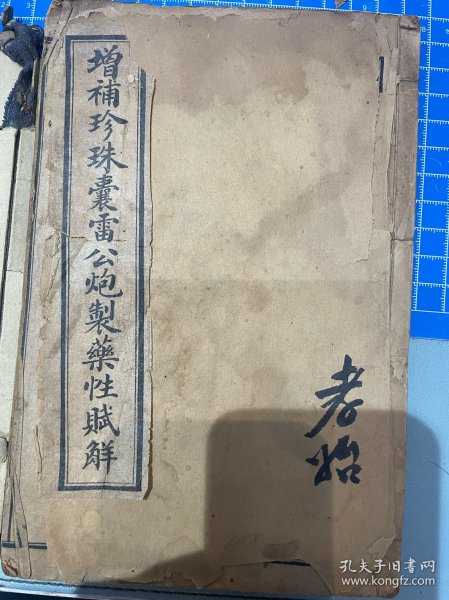 增補珍珠囊雷公炮製藥性賦觧
孝
孔夫子旧书网
www.kongfz.com